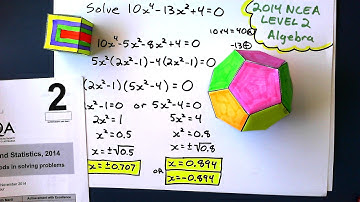 Solve 10x⁴-13x²+4=0
2014 NCEA
LEVEL 2
Algebra
10×4=40
-13
10x⁴-5x²-8x²+4=0
5x²(2x²-1)-4(2x²-1)=0
(2x²-1)(5x²-4)=0
x²-1=0 or 5x²-4=0
2x²=1 5x²=4
x²=0.5 x²=0.8
x=±√0.5 x=±√0.8
x=±0.707 OR x=0.894
x=-0.894
2
QA
nd Statistics, 2014
ods in solving problems
Achievement with Excellence